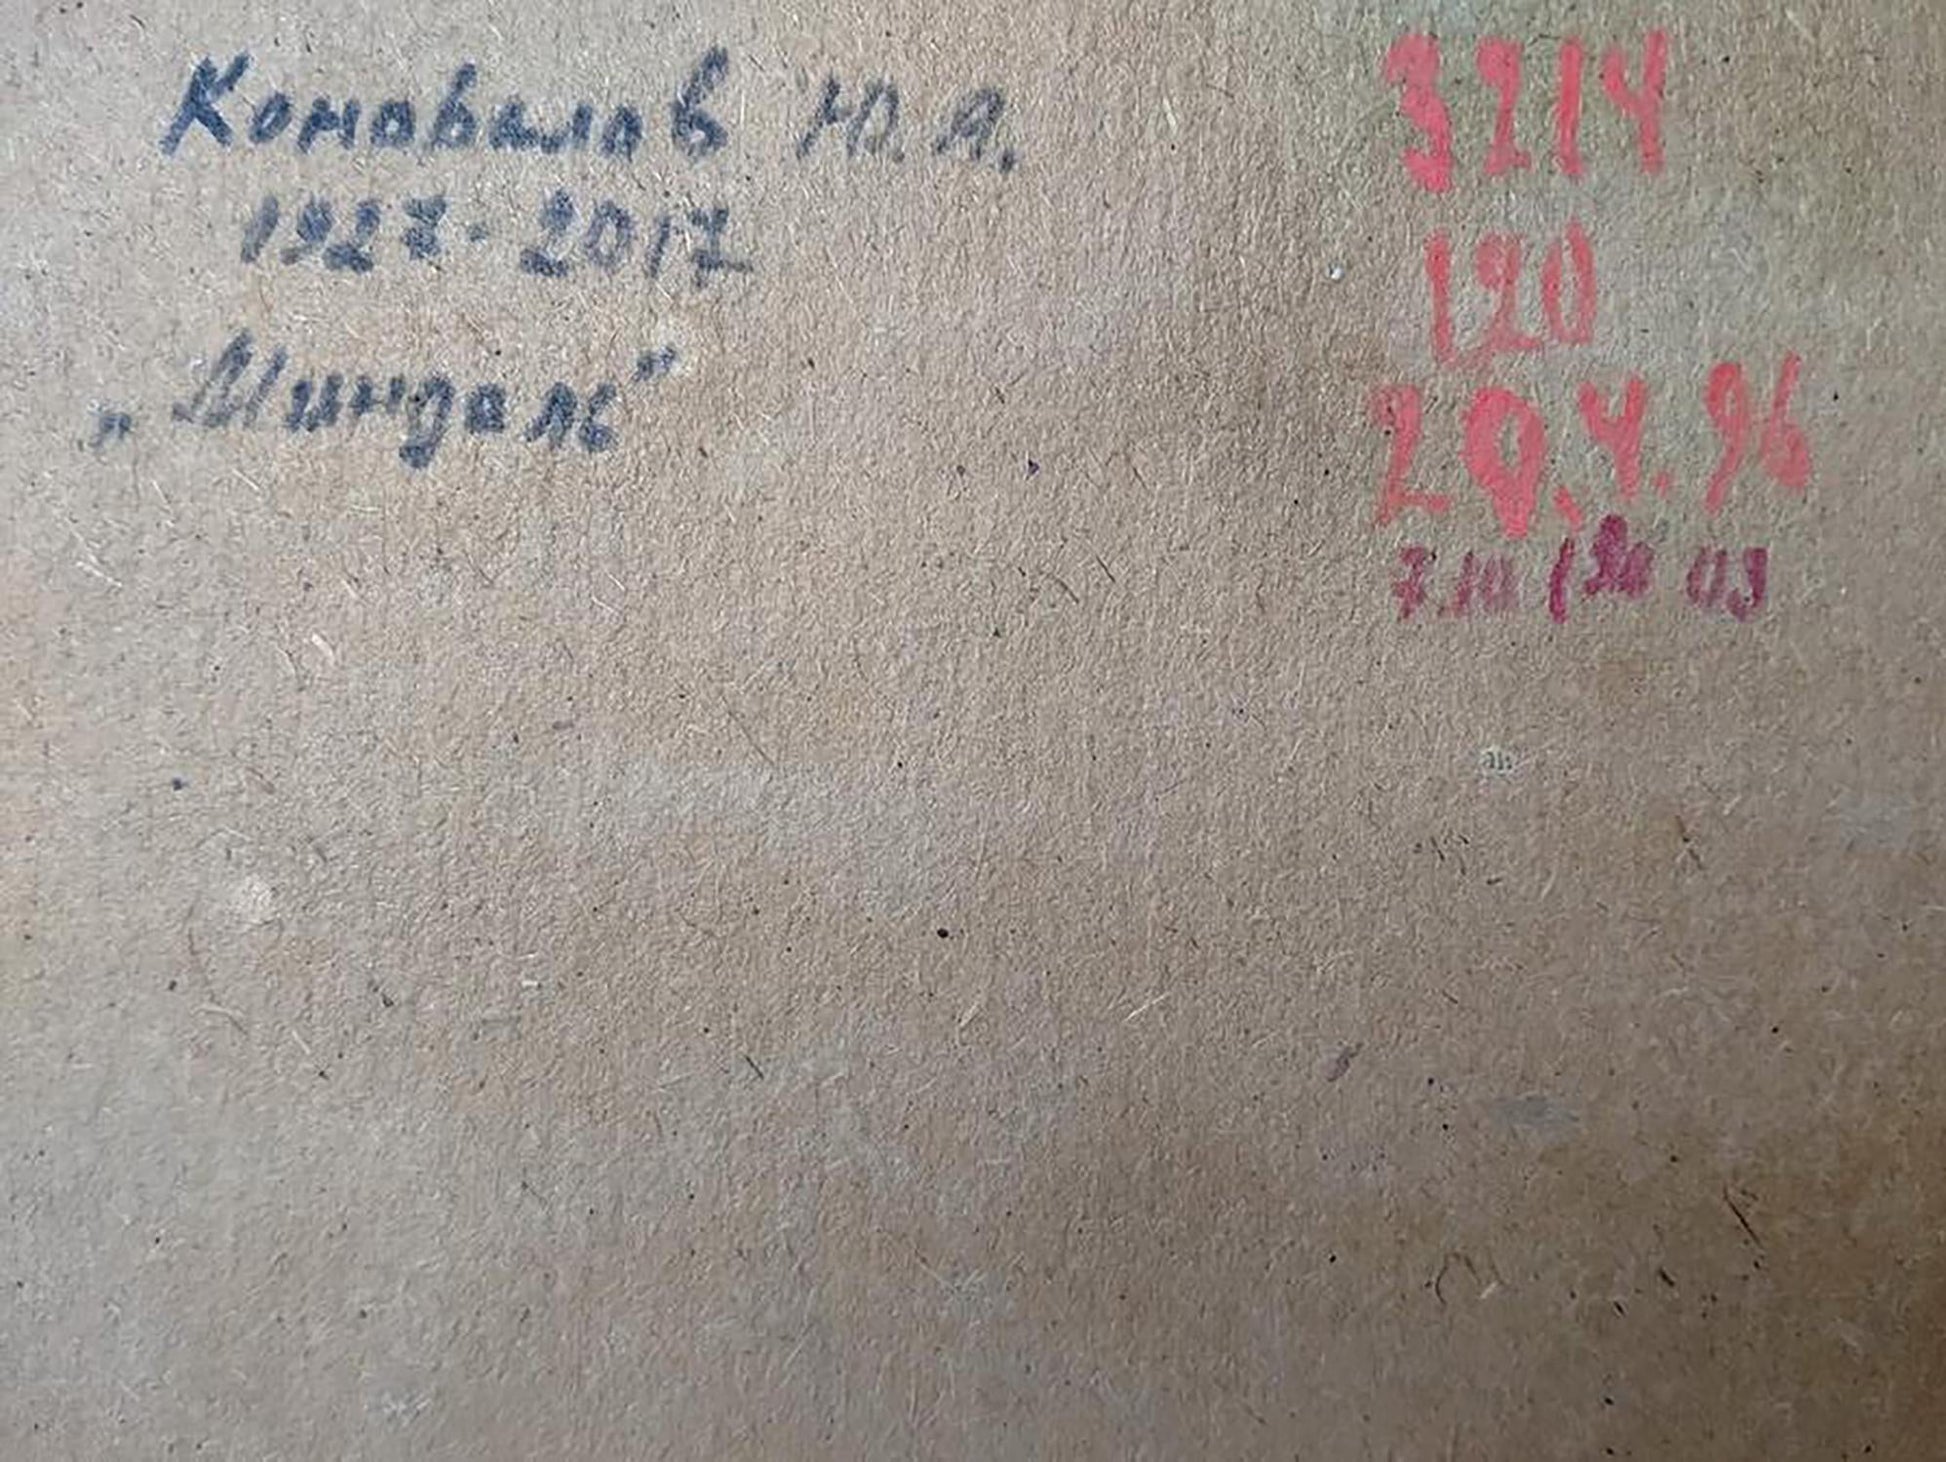 Коновалов Ю.А.
1927-2017
„Миндаль"
3214
120
20.4.96